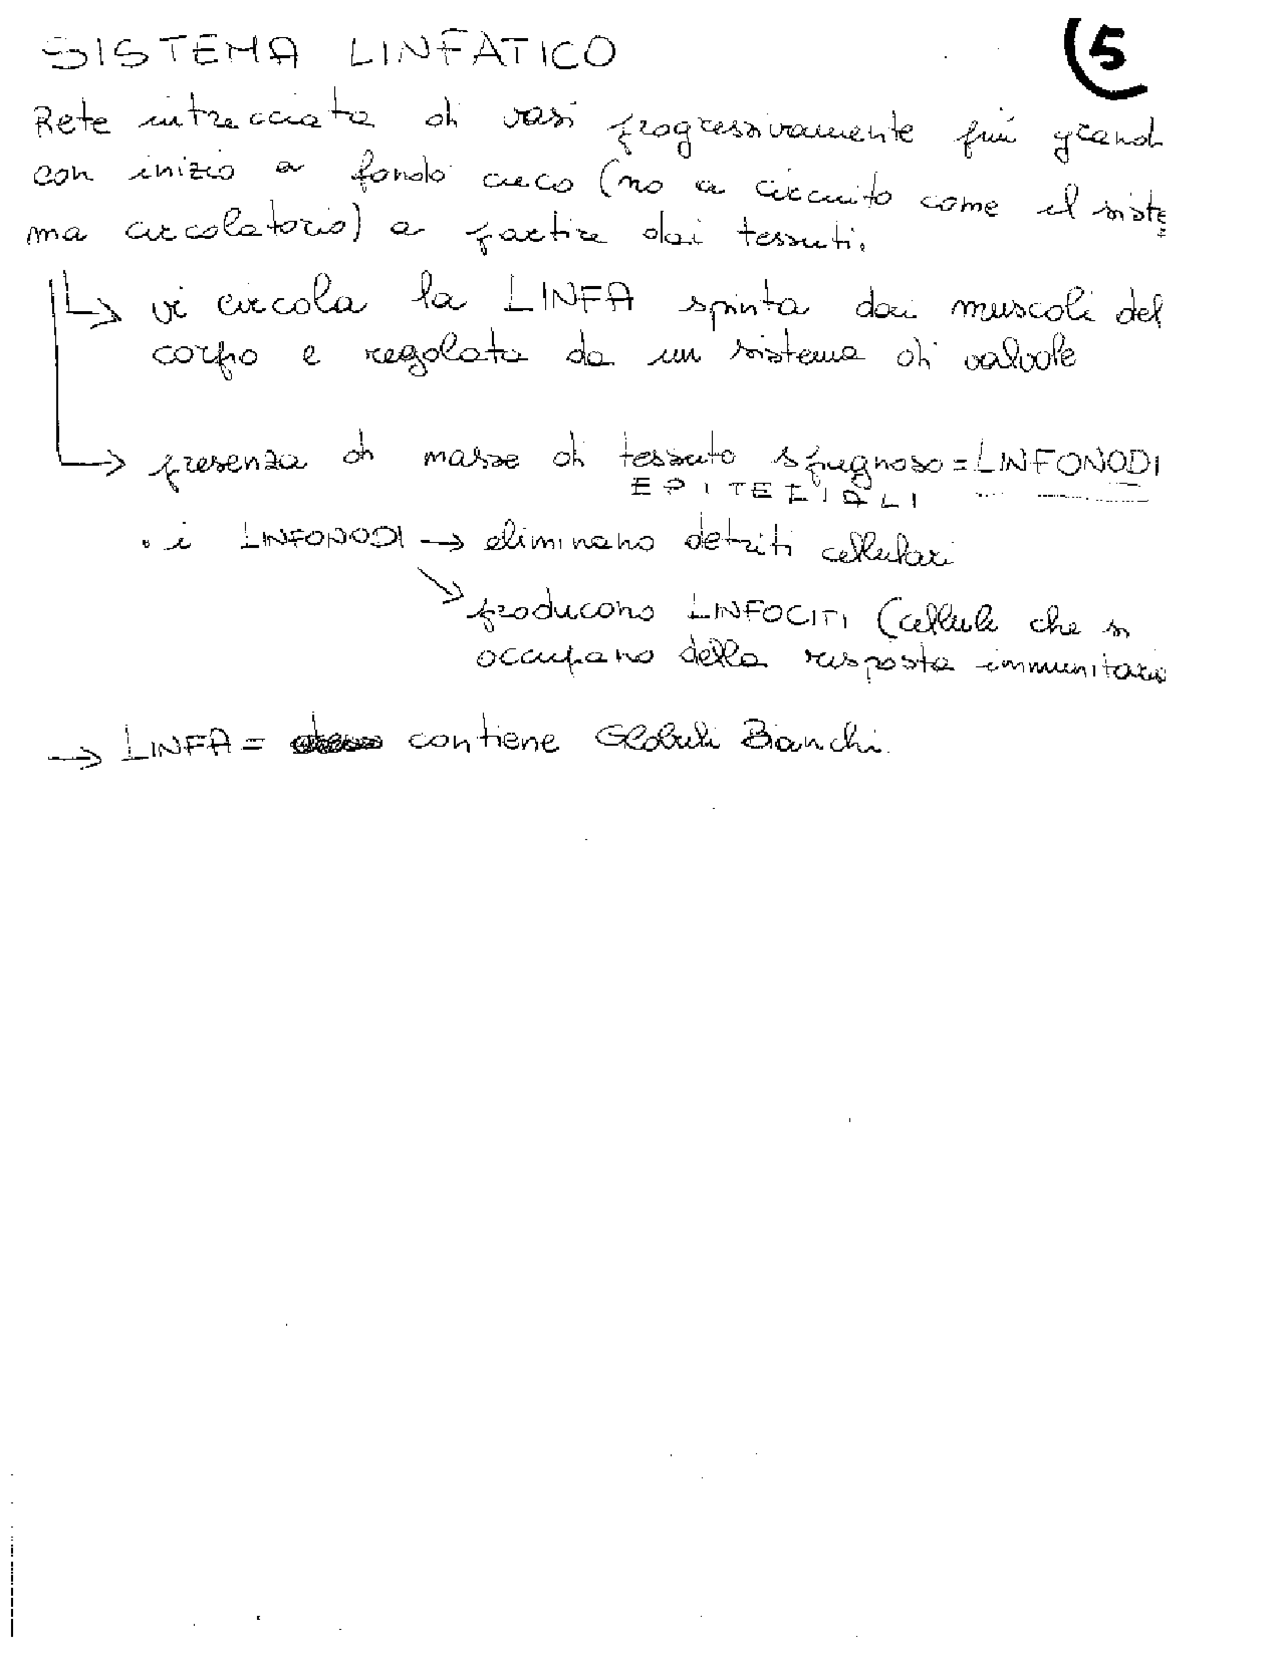 SISTEMA LINFATICO
5
Rete intrecciata di vasi progressivamente più grandi
con inizio a fondo cieco (no a circuito come il siste
ma circolatorio) a partire dai tessuti.
↳ vi circola la LINFA spinta dai muscoli del
corpo e regolata da un sistema di valvole
→ presenza di masse di tessuto spugnoso = LINFONODI
EPITELIALI
• i LINFONODI → eliminano detriti cellulari
↘ producono LINFOCITI (cellule che si
occupano della risposta immunitaria
→ LINFA = contiene Globuli Bianchi.